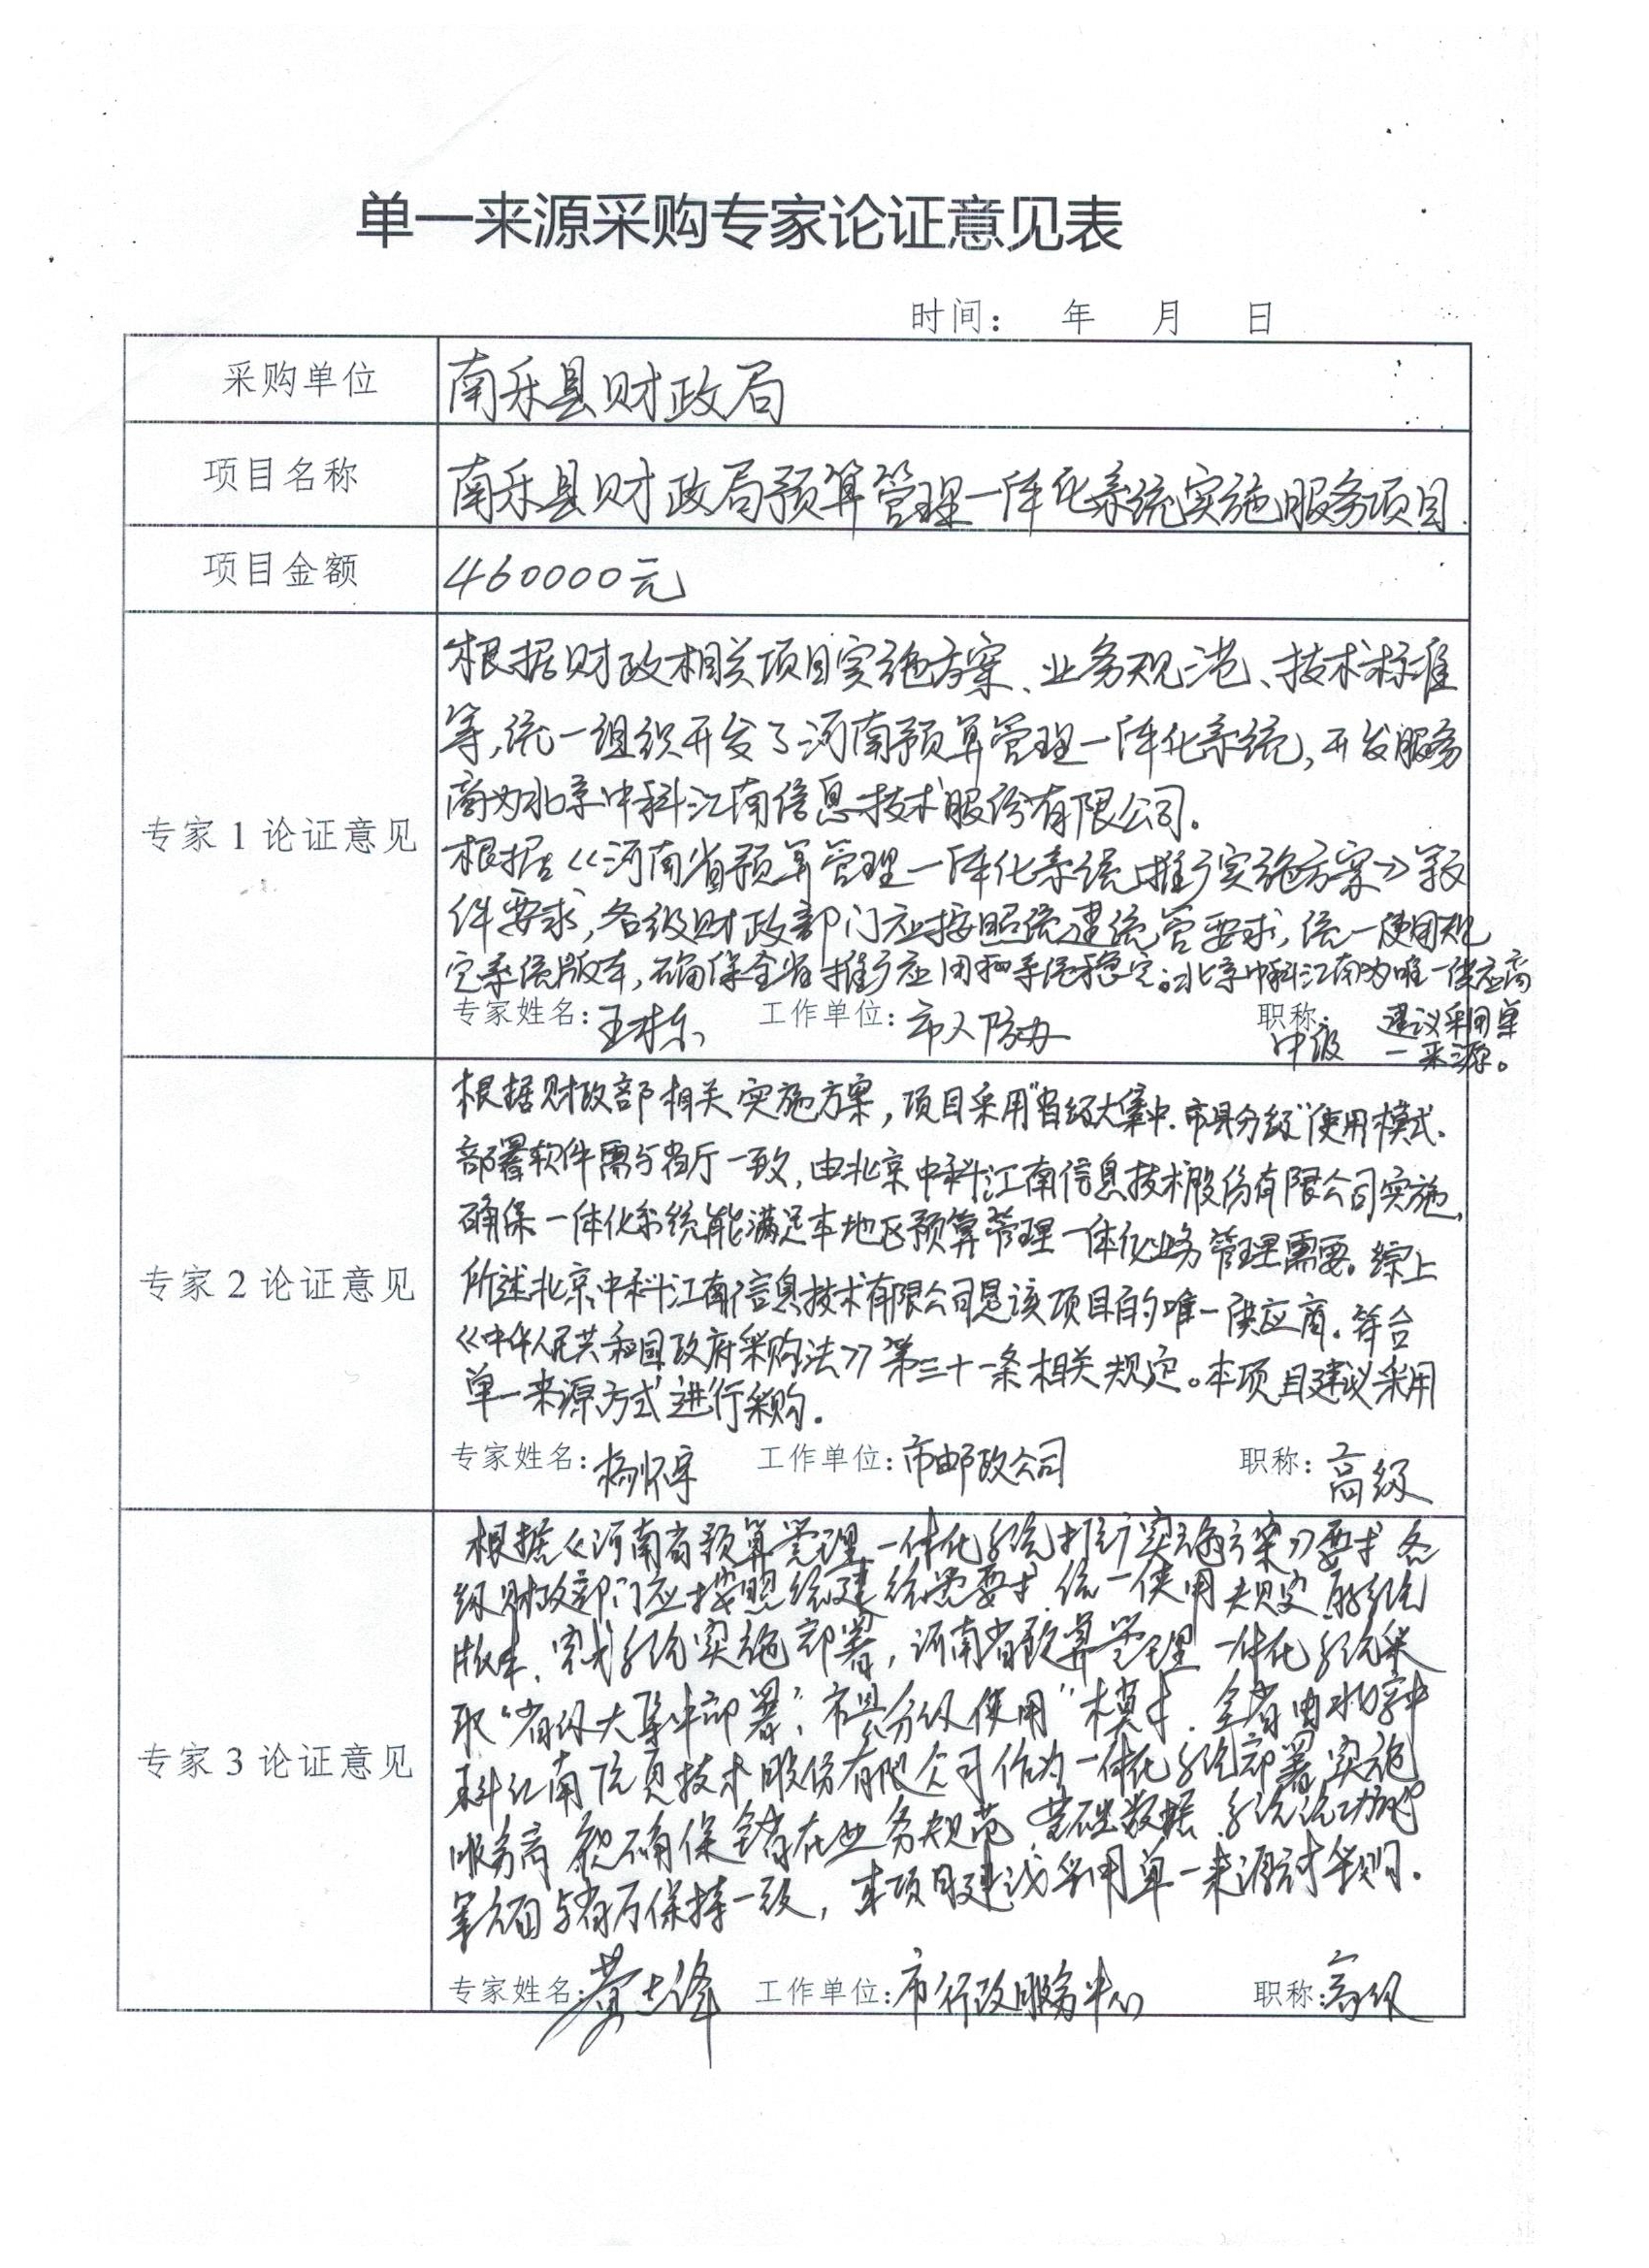 单一来源采购专家论证意见表
时间： 年 月 日
采购单位 南乐县财政局
项目名称 南乐县财政局预算管理一体化系统实施服务项目.
项目金额 460000元
专家1论证意见
根据财政相关项目实施方案、业务规范、技术标准
等,统一组织开发了河南预算管理一体化系统,开发服务
商为北京中科江南信息技术股份有限公司。
根据《河南省预算管理一体化系统推广实施方案》等文
件要求,各级财政部门应按照统建统管要求,统一使用规
定系统版本,确保全省推广应用和系统稳定。北京中科江南为唯一供应商
建议采用单
一来源。
专家姓名: 王 工作单位: 市人防办 职称: 中级
专家2论证意见
根据财政部相关实施方案,项目采用"省级大集中.市县分级"使用模式.
部署软件需与省厅一致,由北京中科江南信息技术股份有限公司实施,
确保一体化系统能满足本地区预算管理一体化业务管理需要。综上
所述北京中科江南信息技术有限公司是该项目的唯一供应商。符合
《中华人民共和国政府采购法》第三十一条相关规定。本项目建议采用
单一来源方式进行采购.
专家姓名: 杨怀宇 工作单位: 市邮政公司 职称: 高级
专家3论证意见
根据《河南省预算管理一体化系统推广实施方案》要求 各
级财政部门应按照统建统管要求 统一使用规定系统
版本、实施部署,河南省预算管理一体化系统采
取"省级大集中部署,市县分级使用"模式.全省由北京中
科江南信息技术股份有限公司作为一体化系统部署实施
服务商 确保全省在业务规范 基础数据 系统功能
等方面与省厅保持一致,本项目建议采用单一来源方式采购.
专家姓名: 工作单位: 市行政服务中心 职称: 高级